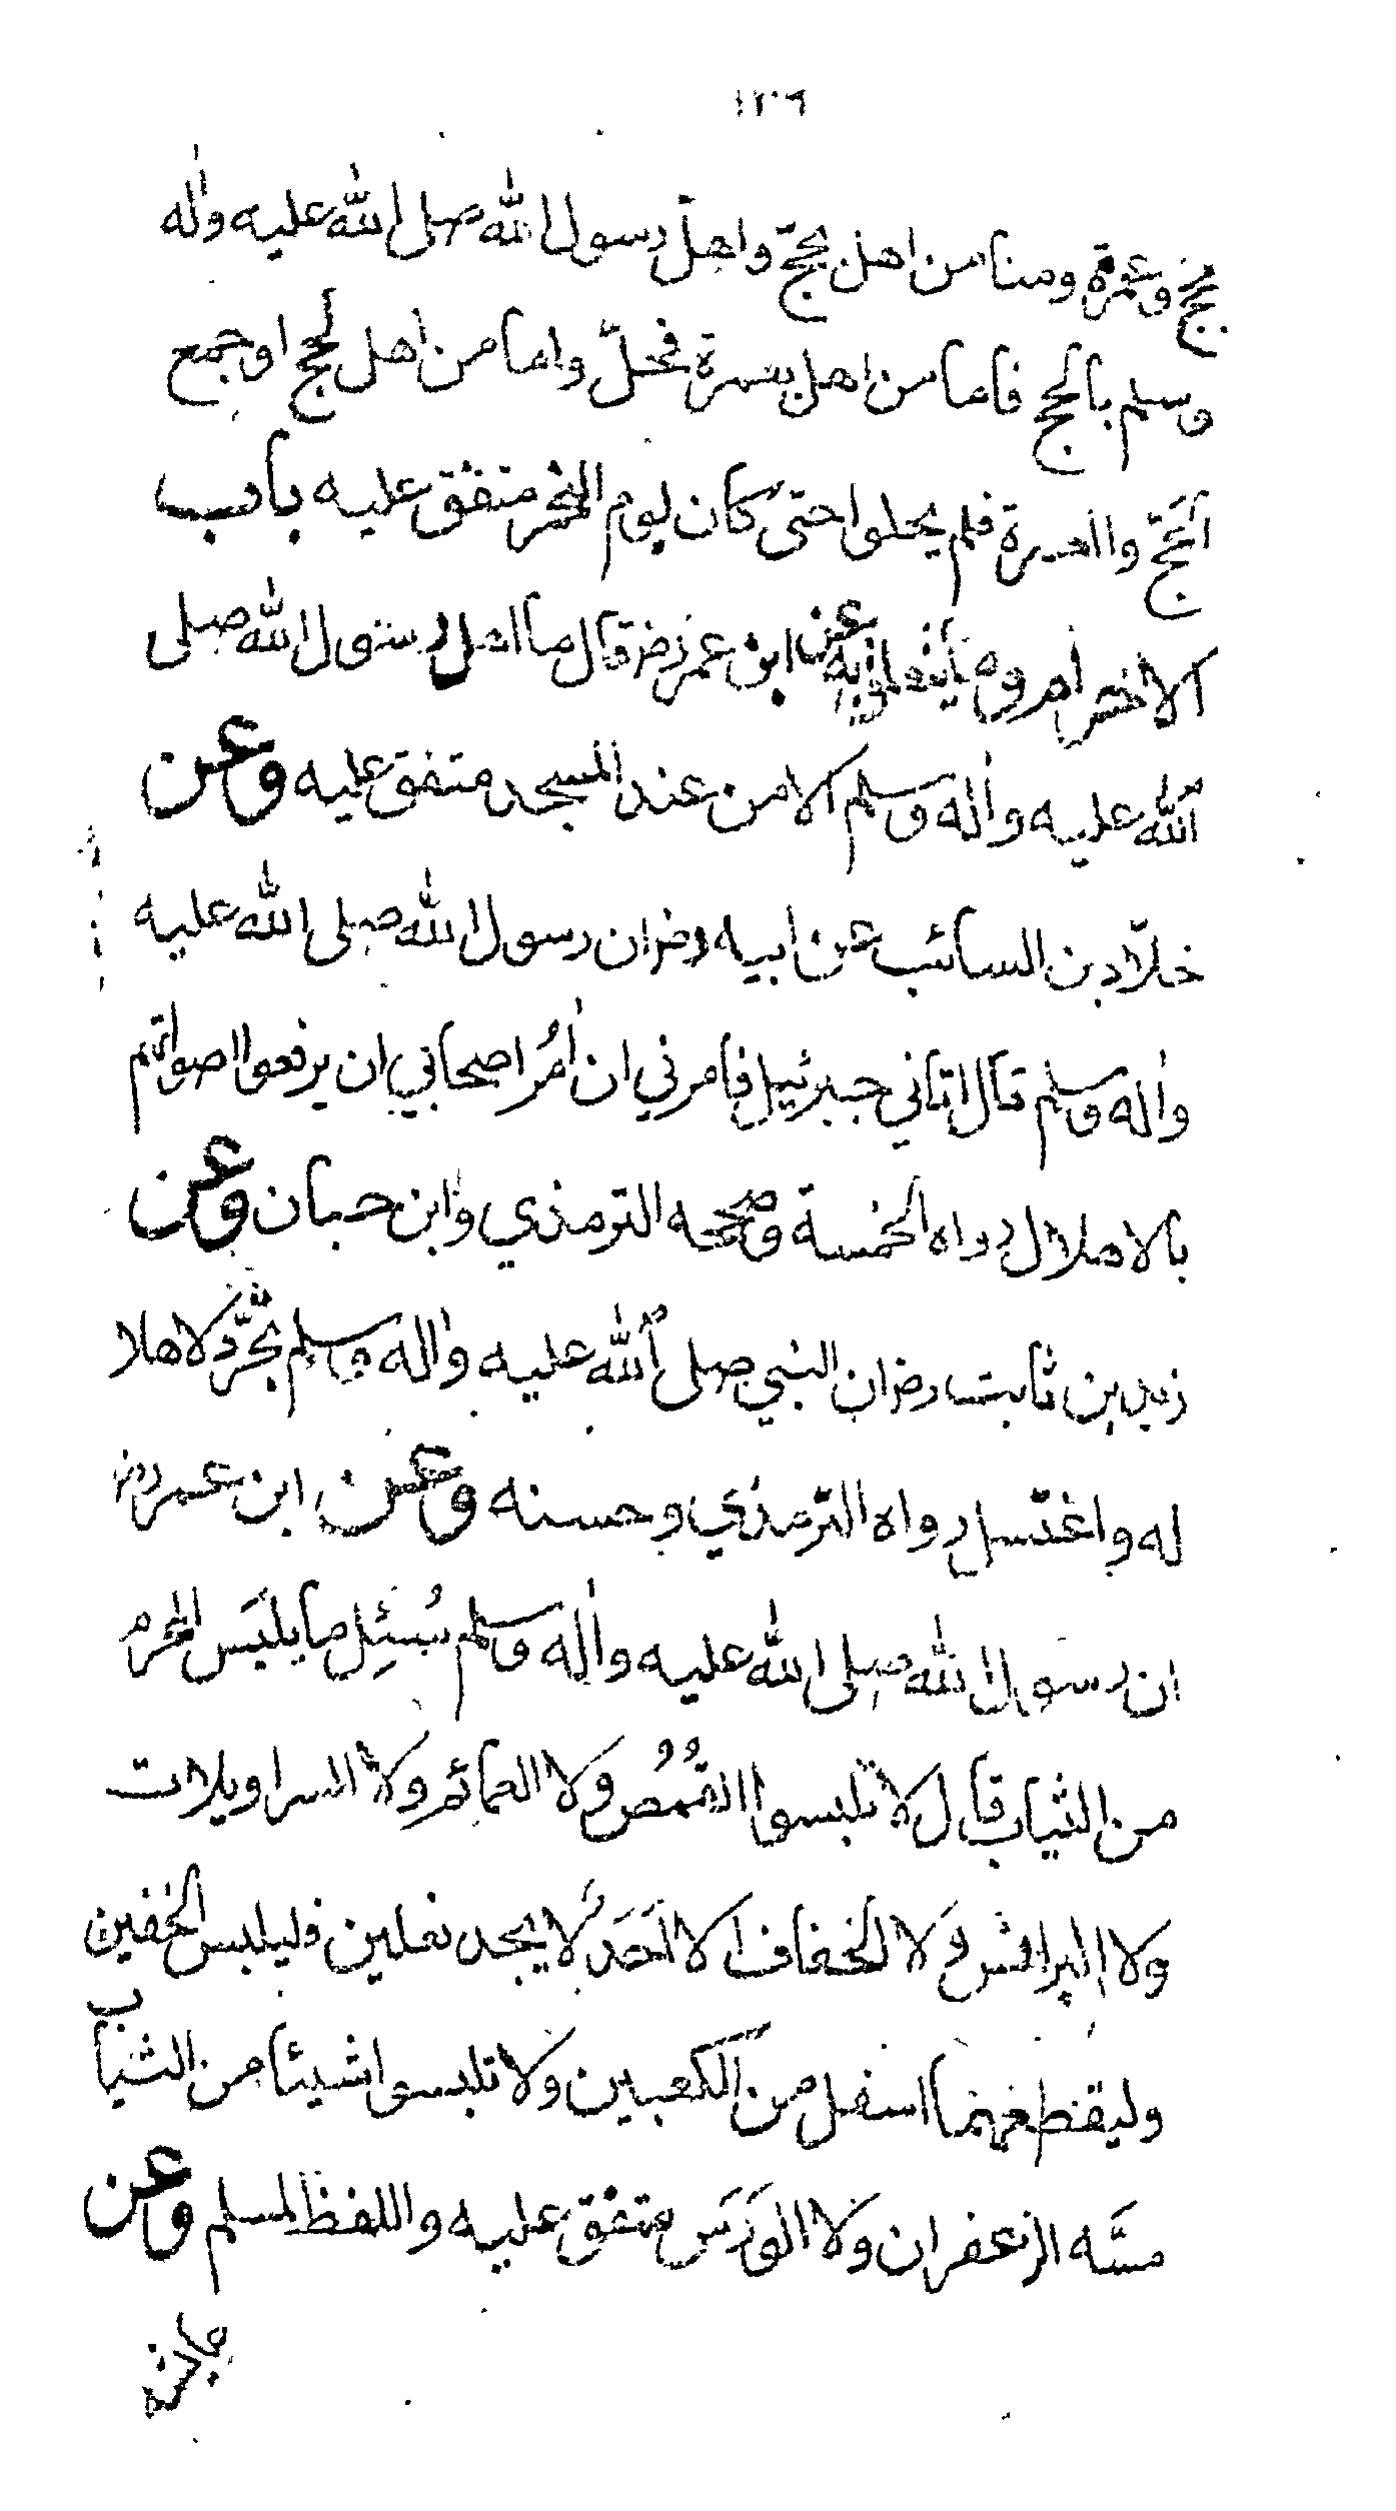 ١٣٠٦
بحج وعمرة ومنا من اهل بحج واهلّ رسول الله صلى الله عليه واٰله
وسلم بالحج فاما من اهل بعمرة فحلّ واما من اهل لحج او جمع
الحجّ والعمرة فلم يحلوا حتى كان يوم النحر متفق عليه باب
الاحرام وما يتعلق به عن ابن عمر رضـ قال ما اهل رسول الله صلى
الله عليه واٰله وسلم الا من عند المسجد متفق عليه وعن
خلّاد بن السائب عن ابيه رضـ ان رسول الله صلى الله عليه
واٰله وسلم قال اتاني جبرئيل فامرني ان اٰمُر اصحابي ان يرفعوا اصواتهم
بالاهلال رواه الخمسة وصححه الترمذي وابن حبان وعن
زيد بن ثابت رضـ ان النبي صلى الله عليه واٰله وسلم تجرَّد لاهلا
له واغتسل رواه الترمذي وحسنه وعن ابن عمر رضـ
ان رسول الله صلى الله عليه واٰله وسلم سُئِل ما يلبَس المحرم
من الثياب قال لا تلبسوا القُمُص ولا العمائم ولا السراويلات
ولا البرانس ولا الخفاف الا احَدٌ لا يجد نعلين فليلبس الخفين
وليقطعهما اسفل من الكعبين ولا تلبسوا شيئا من الثياب
مسَّه الزعفران ولا الوَرَس متفق عليه واللفظ لمسلم وعن